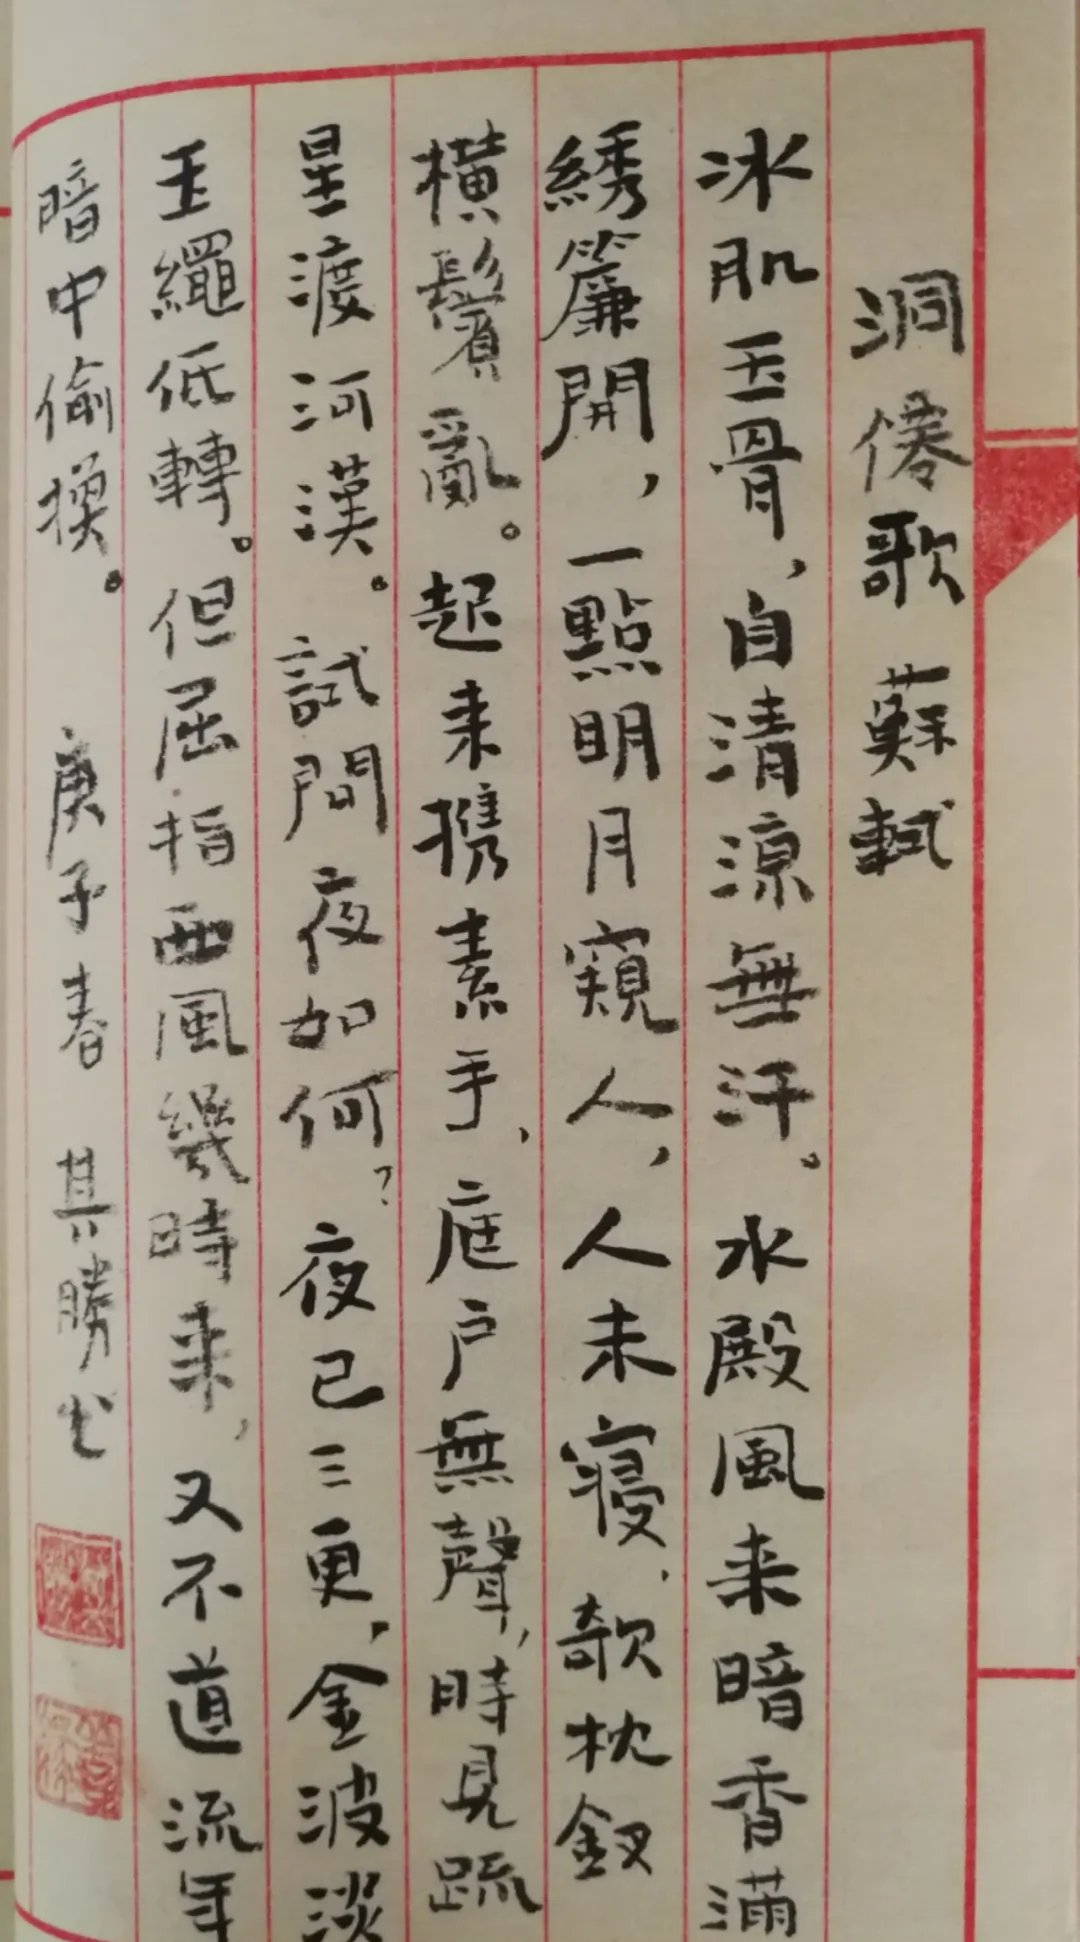 洞僊歌 蘇軾
冰肌玉骨,自清涼無汗。水殿風来暗香滿
綉簾開,一點明月窺人,人未寝,欹枕釵
横鬢亂。起来携素手,庭户無聲,時見疏
星渡河漢。試問夜如何?夜已三更,金波淡
玉繩低轉。但屈指西風幾時来,又不道流年
暗中偷换。 庚子春 其勝书